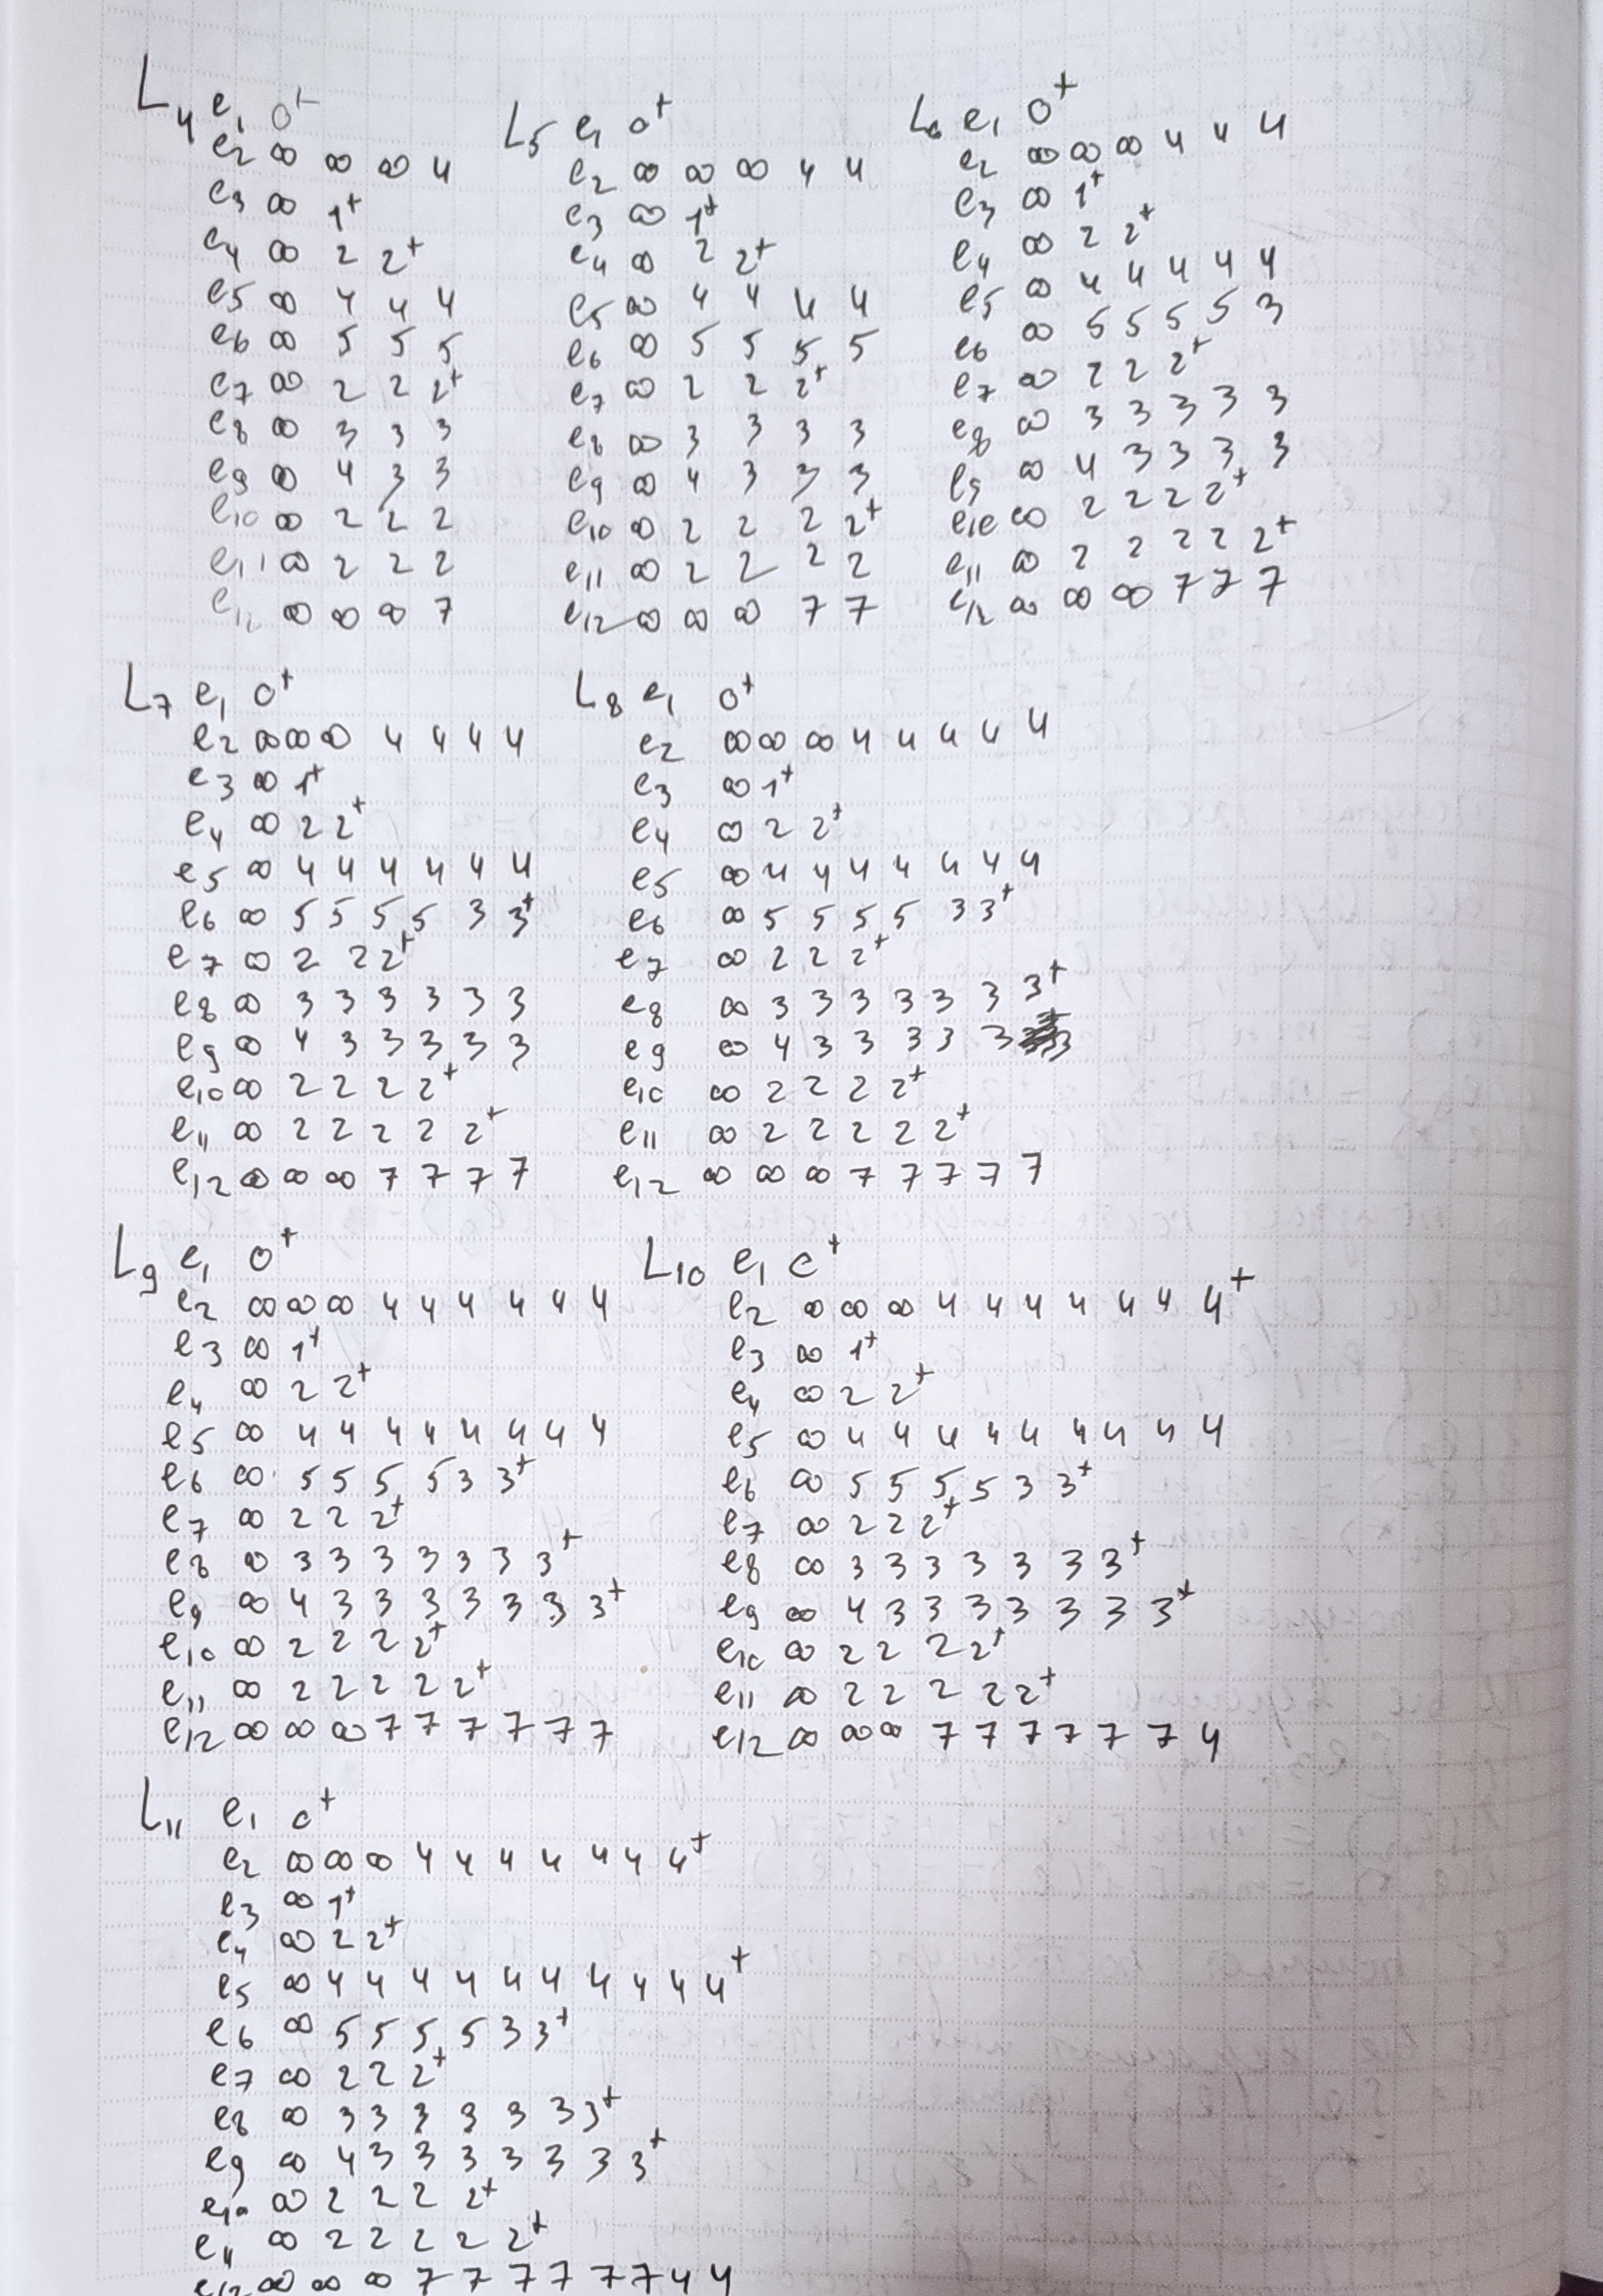 L4 e1 0+
e2 ∞ ∞ ∞ 4
e3 ∞ 1+
e4 ∞ 2 2+
e5 ∞ 4 4 4
e6 ∞ 5 5 5
e7 ∞ 2 2 2+
e8 ∞ 3 3 3
e9 ∞ 4 3 3
e10 ∞ 2 2 2
e11 ∞ 2 2 2
e12 ∞ ∞ ∞ 7
L5 e1 0+
e2 ∞ ∞ ∞ 4 4
e3 ∞ 1+
e4 ∞ 2 2+
e5 ∞ 4 4 4 4
e6 ∞ 5 5 5 5
e7 ∞ 2 2 2+
e8 ∞ 3 3 3 3
e9 ∞ 4 3 3 3
e10 ∞ 2 2 2 2+
e11 ∞ 2 2 2 2
e12 ∞ ∞ ∞ 7 7
L6 e1 0+
e2 ∞ ∞ ∞ 4 4 4
e3 ∞ 1+
e4 ∞ 2 2+
e5 ∞ 4 4 4 4 4
e6 ∞ 5 5 5 5 3
e7 ∞ 2 2 2+
e8 ∞ 3 3 3 3 3
e9 ∞ 4 3 3 3 3
e10 ∞ 2 2 2 2+
e11 ∞ 2 2 2 2 2+
e12 ∞ ∞ ∞ 7 7 7
L7 e1 0+
e2 ∞ ∞ ∞ 4 4 4 4
e3 ∞ 1+
e4 ∞ 2 2+
e5 ∞ 4 4 4 4 4 4
e6 ∞ 5 5 5 5 3 3+
e7 ∞ 2 2 2+
e8 ∞ 3 3 3 3 3 3
e9 ∞ 4 3 3 3 3 3
e10 ∞ 2 2 2 2+
e11 ∞ 2 2 2 2 2+
e12 ∞ ∞ ∞ 7 7 7 7
L8 e1 0+
e2 ∞ ∞ ∞ 4 4 4 4 4
e3 ∞ 1+
e4 ∞ 2 2+
e5 ∞ 4 4 4 4 4 4 4
e6 ∞ 5 5 5 5 3 3+
e7 ∞ 2 2 2+
e8 ∞ 3 3 3 3 3 3 3+
e9 ∞ 4 3 3 3 3 3 3
e10 ∞ 2 2 2 2+
e11 ∞ 2 2 2 2 2+
e12 ∞ ∞ ∞ 7 7 7 7 7
L9 e1 0+
e2 ∞ ∞ ∞ 4 4 4 4 4 4
e3 ∞ 1+
e4 ∞ 2 2+
e5 ∞ 4 4 4 4 4 4 4 4
e6 ∞ 5 5 5 5 3 3+
e7 ∞ 2 2 2+
e8 ∞ 3 3 3 3 3 3 3+
e9 ∞ 4 3 3 3 3 3 3 3+
e10 ∞ 2 2 2 2+
e11 ∞ 2 2 2 2 2+
e12 ∞ ∞ ∞ 7 7 7 7 7 7
L10 e1 0+
e2 ∞ ∞ ∞ 4 4 4 4 4 4 4+
e3 ∞ 1+
e4 ∞ 2 2+
e5 ∞ 4 4 4 4 4 4 4 4 4
e6 ∞ 5 5 5 5 3 3+
e7 ∞ 2 2 2+
e8 ∞ 3 3 3 3 3 3 3+
e9 ∞ 4 3 3 3 3 3 3 3+
e10 ∞ 2 2 2 2+
e11 ∞ 2 2 2 2 2+
e12 ∞ ∞ ∞ 7 7 7 7 7 7 4
L11 e1 0+
e2 ∞ ∞ ∞ 4 4 4 4 4 4 4+
e3 ∞ 1+
e4 ∞ 2 2+
e5 ∞ 4 4 4 4 4 4 4 4 4 4+
e6 ∞ 5 5 5 5 3 3+
e7 ∞ 2 2 2+
e8 ∞ 3 3 3 3 3 3 3+
e9 ∞ 4 3 3 3 3 3 3 3+
e10 ∞ 2 2 2 2+
e11 ∞ 2 2 2 2 2+
e12 ∞ ∞ ∞ 7 7 7 7 7 7 4 4